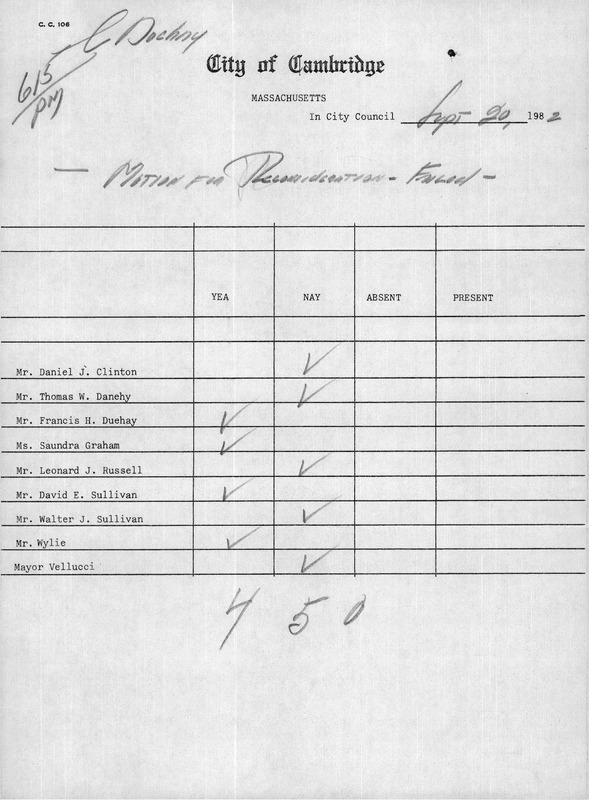 C. C. 106
City of Cambridge
615
PM
MASSACHUSETTS
In City Council Sept 20, 1982
- Motion for Reconsideration - Failed -
YEA NAY ABSENT PRESENT
Mr. Daniel J. Clinton ✓
Mr. Thomas W. Danehy ✓
Mr. Francis H. Duehay ✓
Ms. Saundra Graham ✓
Mr. Leonard J. Russell ✓
Mr. David E. Sullivan ✓
Mr. Walter J. Sullivan ✓
Mr. Wylie ✓
Mayor Vellucci ✓
4 5 0